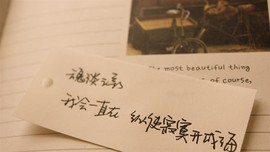 most beautiful thing
of course,
我会一直在 纵使寂寞开成海